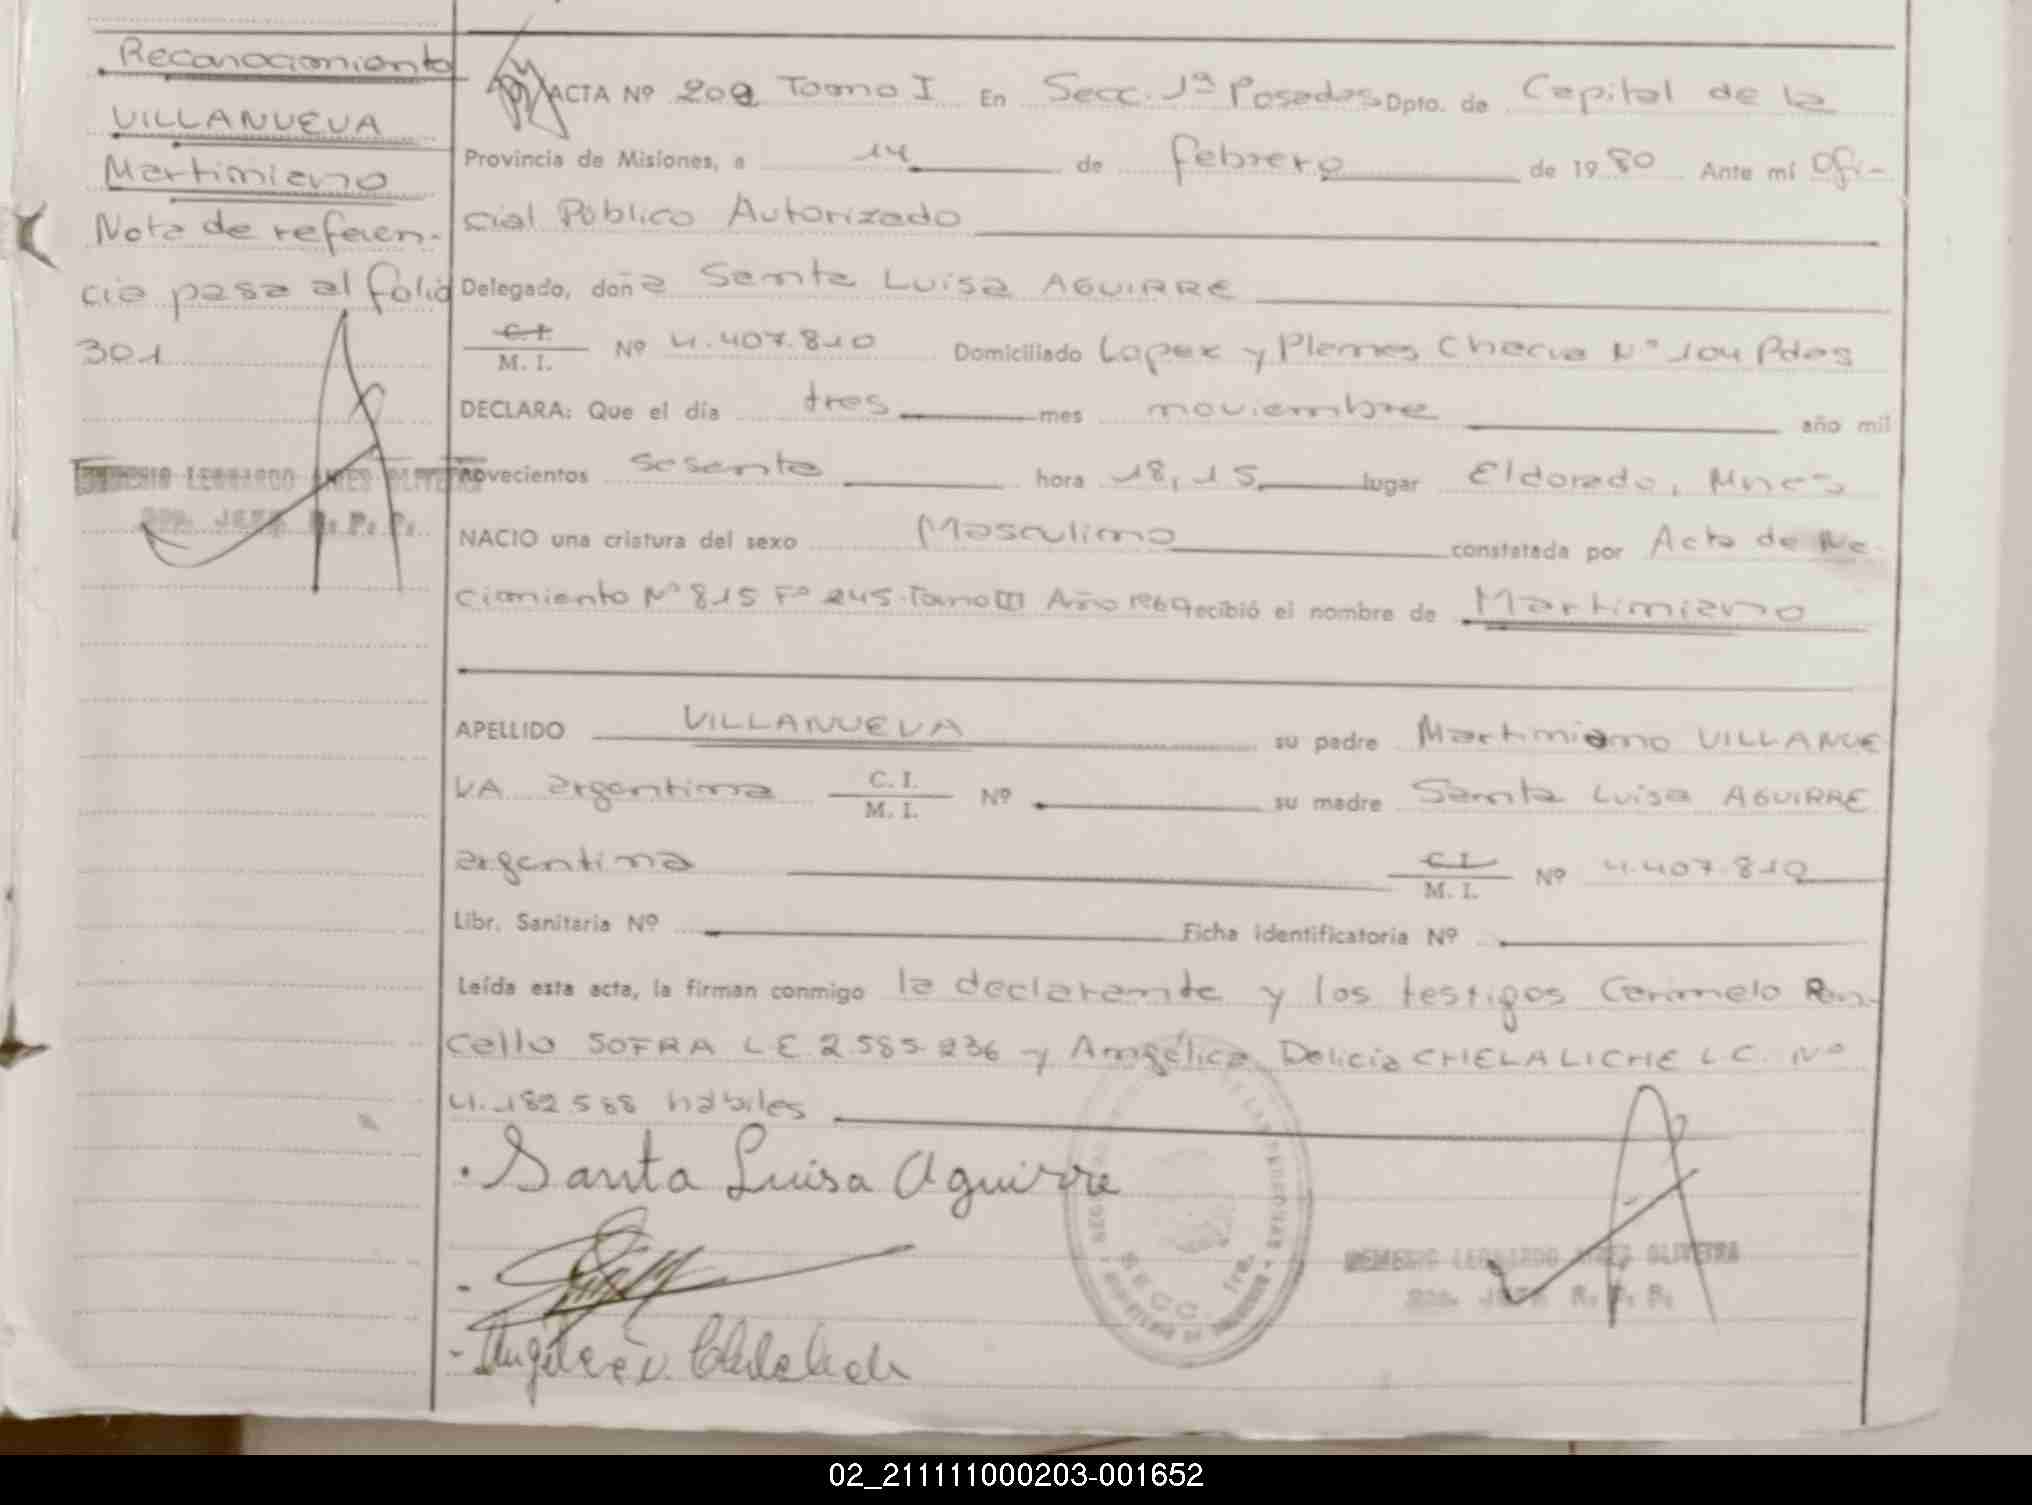 Reconocimiento
VILLANUEVA
Martimiano
Nota de referen-
cia pasa al folio
301
LEONARDO AIRES OLIVEIRA
JEFE R. P. P.
ACTA Nº 202 Tomo I En Secc. 1ª Posadas Dpto. de Capital de la
Provincia de Misiones, a 14 de febrero de 1980 Ante mí Ofi-
cial Público Autorizado
Delegado, doña Santa Luisa AGUIRRE
C. I.
M. I. Nº 4.407.810 Domiciliado Lopez y Planes Chacra Nº 104 Pdas
DECLARA: Que el día tres mes noviembre año mil
novecientos sesenta hora 18,15 lugar Eldorado, Mnes
NACIO una criatura del sexo Masculino constatada por Acta de Na-
cimiento Nº 815 Fº 245 Tomo III Año recibió el nombre de Martimiano
APELLIDO VILLANUEVA su padre Martimiano VILLANUE
VA argentina C. I. M. I. Nº su madre Santa Luisa AGUIRRE
argentina C. I. M. I. Nº 4.407.810
Libr. Sanitaria Nº Ficha identificatoria Nº
Leída esta acta, la firman conmigo la declarante y los testigos Carmelo Ron-
cello SOFRA L E 2.585.236 y Angélica Delicia CHELALICHE L.C. Nº
4.182.588 hábiles
Santa Luisa Aguirre
SECC. 1ra.
NEMESIO LEONARDO AIRES OLIVEIRA
JEFE R. P. P.
02_211111000203-001652